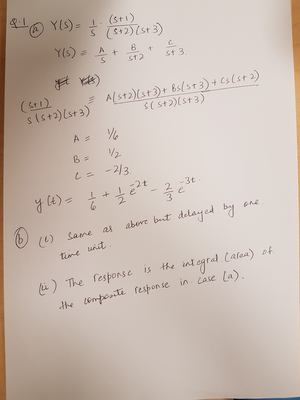 Q.1 (a) Y(s) = 1/s · (s+1)/((s+2)(s+3))
Y(s) = A/s + B/(s+2) + C/(s+3)
(s+1)/(s(s+2)(s+3)) = (A(s+2)(s+3) + Bs(s+3) + Cs(s+2))/(s(s+2)(s+3))
A = 1/6
B = 1/2
C = -2/3
y(t) = 1/6 + 1/2 e^-2t - 2/3 e^-3t
(b) (i) Same as above but delayed by one
time unit.
(ii) The response is the integral (area) of
the composite response in case (a).